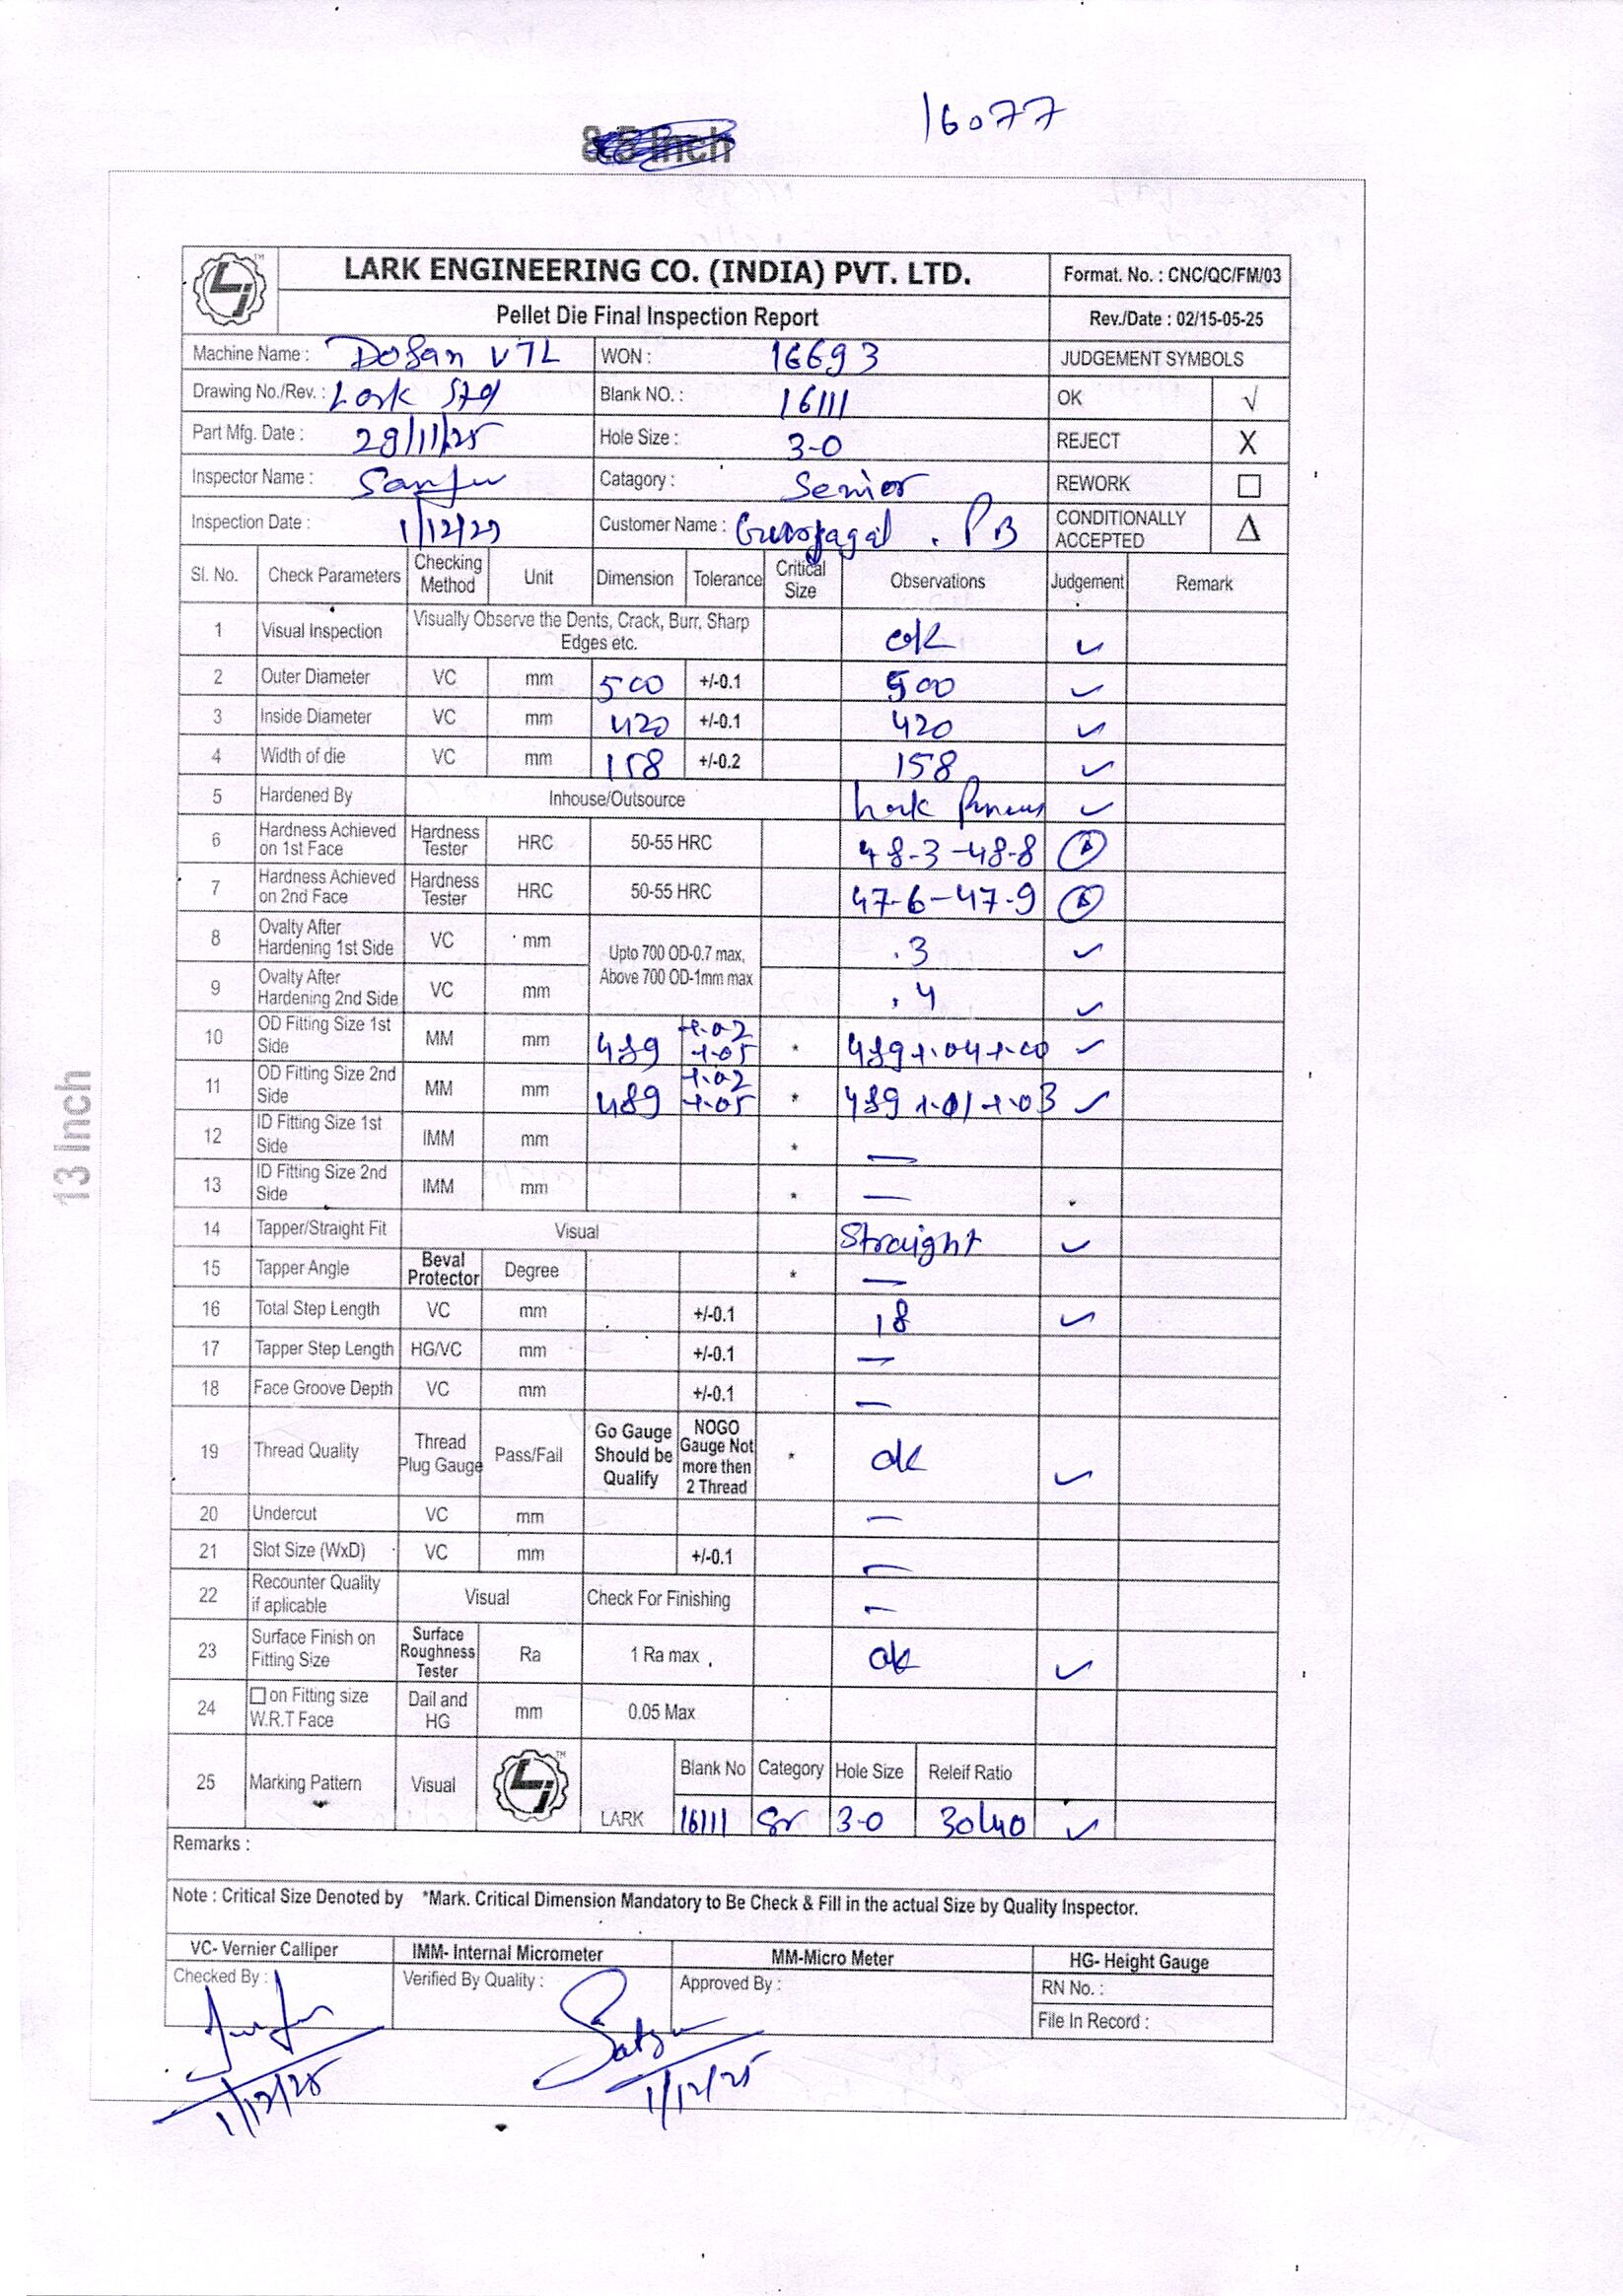 16077
8.5 Inch
13 Inch
LARK ENGINEERING CO. (INDIA) PVT. LTD. Format. No. : CNC/QC/FM/03
Pellet Die Final Inspection Report Rev./Date : 02/15-05-25
Machine Name : Dosan VTL WON : 16693 JUDGEMENT SYMBOLS
Drawing No./Rev. : Lark Std Blank NO. : 16111 OK √
Part Mfg. Date : 29/11/25 Hole Size : 3-0 REJECT X
Inspector Name : Catagory : Senior REWORK □
Inspection Date : 1/12/25 Customer Name : PB CONDITIONALLY ACCEPTED Δ
Sl. No. Check Parameters Checking Method Unit Dimension Tolerance Critical Size Observations Judgement Remark
1 Visual Inspection Visually Observe the Dents, Crack, Burr, Sharp Edges etc. ok ✓
2 Outer Diameter VC mm 500 +/-0.1 500 ✓
3 Inside Diameter VC mm 420 +/-0.1 420 ✓
4 Width of die VC mm 158 +/-0.2 158 ✓
5 Hardened By Inhouse/Outsource Lark ✓
6 Hardness Achieved on 1st Face Hardness Tester HRC 50-55 HRC 48-3-48-8 Δ
7 Hardness Achieved on 2nd Face Hardness Tester HRC 50-55 HRC 47-6-47-9 Δ
8 Ovalty After Hardening 1st Side VC mm Upto 700 OD-0.7 max, Above 700 OD-1mm max .3 ✓
9 Ovalty After Hardening 2nd Side VC mm .4 ✓
10 OD Fitting Size 1st Side MM mm 489 +.02 +.05 * 489+.04+.00 ✓
11 OD Fitting Size 2nd Side MM mm 489 +.02 +.05 * 489+.01+.03 ✓
12 ID Fitting Size 1st Side IMM mm * —
13 ID Fitting Size 2nd Side IMM mm * —
14 Tapper/Straight Fit Visual Straight ✓
15 Tapper Angle Beval Protector Degree * —
16 Total Step Length VC mm +/-0.1 18 ✓
17 Tapper Step Length HG/VC mm +/-0.1 —
18 Face Groove Depth VC mm +/-0.1 —
19 Thread Quality Thread Plug Gauge Pass/Fail Go Gauge Should be Qualify NOGO Gauge Not more then 2 Thread * ok ✓
20 Undercut VC mm —
21 Slot Size (WxD) VC mm +/-0.1 —
22 Recounter Quality if aplicable Visual Check For Finishing —
23 Surface Finish on Fitting Size Surface Roughness Tester Ra 1 Ra max ok ✓
24 □ on Fitting size W.R.T Face Dail and HG mm 0.05 Max
25 Marking Pattern Visual LARK Blank No Category Hole Size Releif Ratio
16111 Sr 3-0 30/40 ✓
Remarks :
Note : Critical Size Denoted by *Mark. Critical Dimension Mandatory to Be Check & Fill in the actual Size by Quality Inspector.
VC- Vernier Calliper IMM- Internal Micrometer MM-Micro Meter HG- Height Gauge
Checked By : Verified By Quality : Approved By : RN No. :
File In Record :
1/12/25 1/12/25